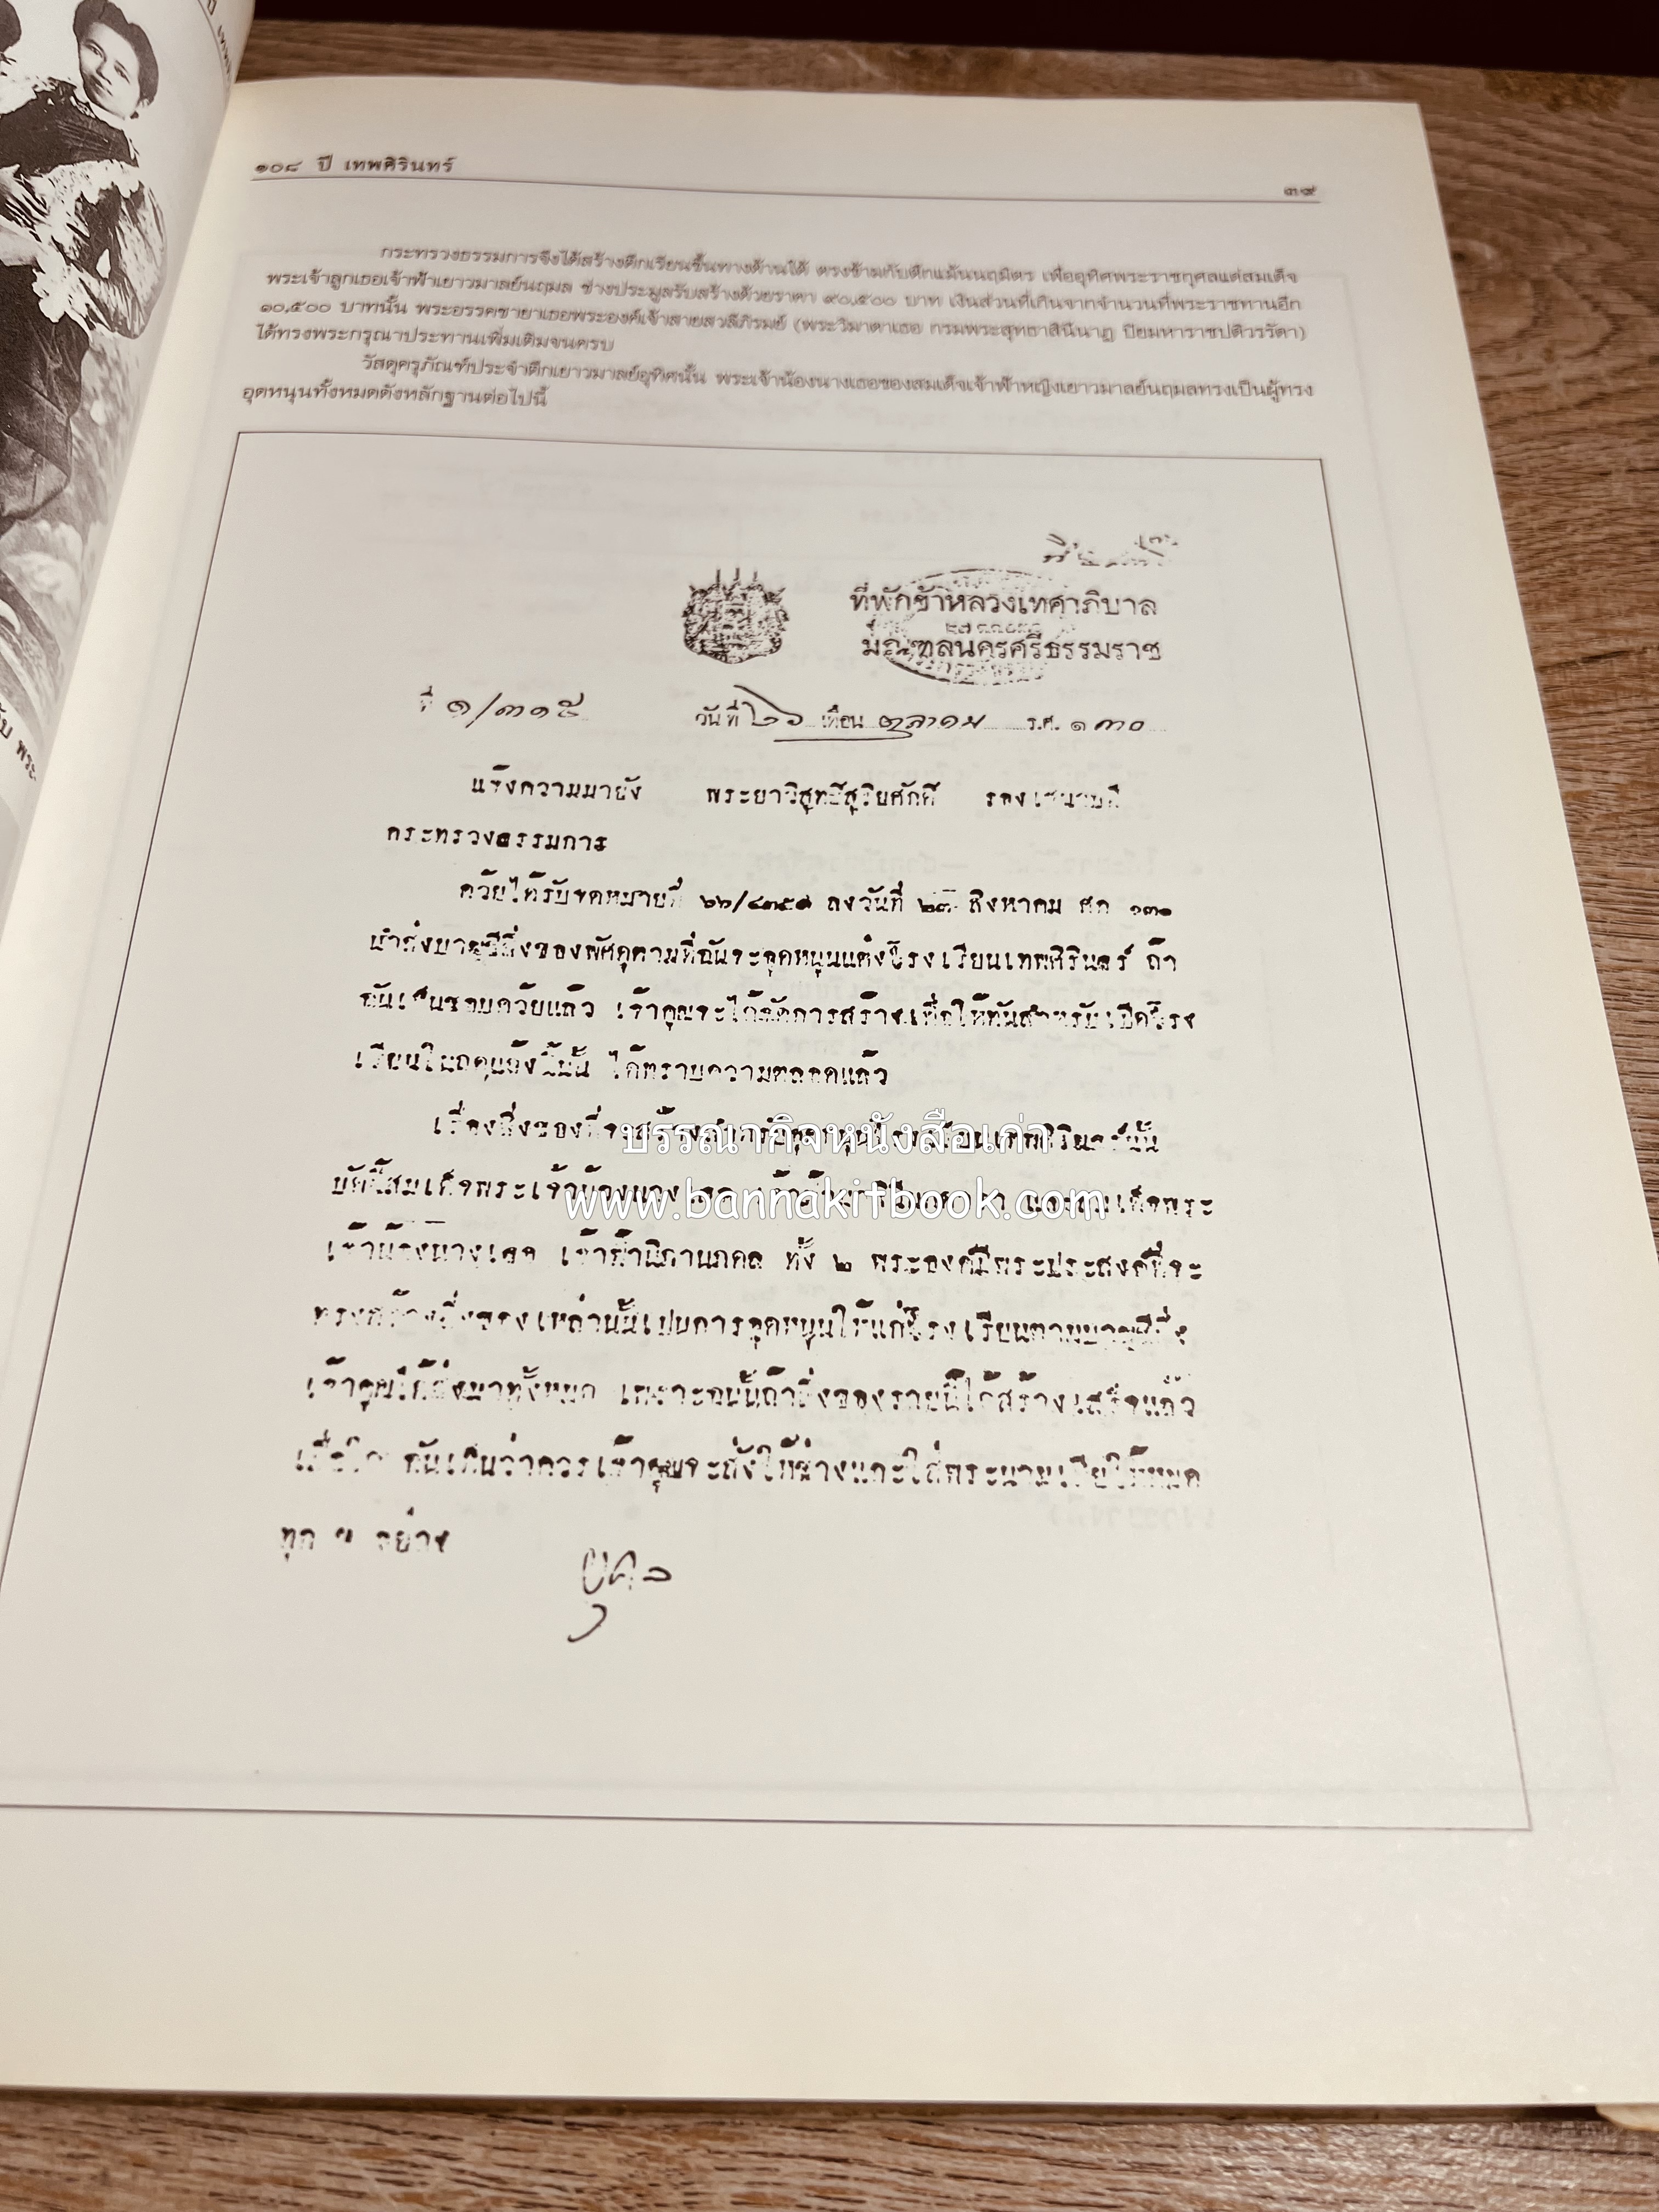 ๑๐๘ ปี เทพศิรินทร์
๓๙
กระทรวงธรรมการจึงได้สร้างตึกเรียนขึ้นทางด้านใต้ ตรงข้ามกับตึกแม้นนฤมิตร เพื่ออุทิศพระราชกุศลแด่สมเด็จ
พระเจ้าลูกเธอเจ้าฟ้าเยาวมาลย์นฤมล ช่างประมูลรับสร้างด้วยราคา ๙๐,๕๐๐ บาท เงินส่วนที่เกินจากจำนวนที่พระราชทานอีก
๑๐,๕๐๐ บาทนั้น พระอรรคชายาเธอพระองค์เจ้าสายสวลีภิรมย์ (พระวิมาดาเธอ กรมพระสุทธาสินีนาฏ ปิยมหาราชปดิวรรัดา)
ได้ทรงพระกรุณาประทานเพิ่มเติมจนครบ
วัสดุครุภัณฑ์ประจำตึกเยาวมาลย์อุทิศนั้น พระเจ้าน้องนางเธอของสมเด็จเจ้าฟ้าหญิงเยาวมาลย์นฤมลทรงเป็นผู้ทรง
อุดหนุนทั้งหมดดังหลักฐานต่อไปนี้
ที่พักข้าหลวงเทศาภิบาล
มณฑลนครศรีธรรมราช
ที่ ๑/๓๑๕ วันที่ ๒๖ เดือน ตุลาคม ร.ศ. ๑๓๐
แจ้งความมายัง พระยาวิสุทธิสุริยศักดิ์ รองเสนาบดี
กระทรวงธรรมการ
ด้วยได้รับจดหมายที่ ลงวันที่ ๒๘ สิงหาคม ศก ๑๓๐
นำส่งบาญชีสิ่งของพัศดุตามที่ฉันจะอุดหนูนแต่งโรงเรียนเทพศิรินทร์ ถ้า
ฉันเห็นชอบด้วยแล้ว เจ้าคุณจะได้จัดการสร้างเพื่อให้ทันสำหรับเปิดโรง
เรียนในฤดูแล้งนี้นั้น ได้ทราบความตลอดแล้ว
เรื่องสิ่งของที่จะสร้างสำหรับอุดหนุนโรงเรียนเทพศิรินทร์นั้น
บัดนี้สมเด็จพระเจ้าน้องนางเธอ และสมเด็จพระ
เจ้าน้องนางเธอ เจ้าฟ้านิภานภดล ทั้ง ๒ พระองค์มีพระประสงค์ที่จะ
ทรงสร้างสิ่งของเหล่านั้นเปนการอุดหนูนให้แก่โรงเรียนตามบาญชีซึ่ง
เจ้าคุณได้ส่งมาทั้งหมด เพราะฉนั้นถ้าสิ่งของรายนี้ได้สร้างเสร็จแล้ว
เมื่อใด ฉันเห็นว่าควรเจ้าคุณจะสั่งให้ช่างแกะใส่พระนามเสียให้หมด
ทุก ๆ อย่าง
บรรณากิจหนังสือเก่า
www.bannakitbook.com